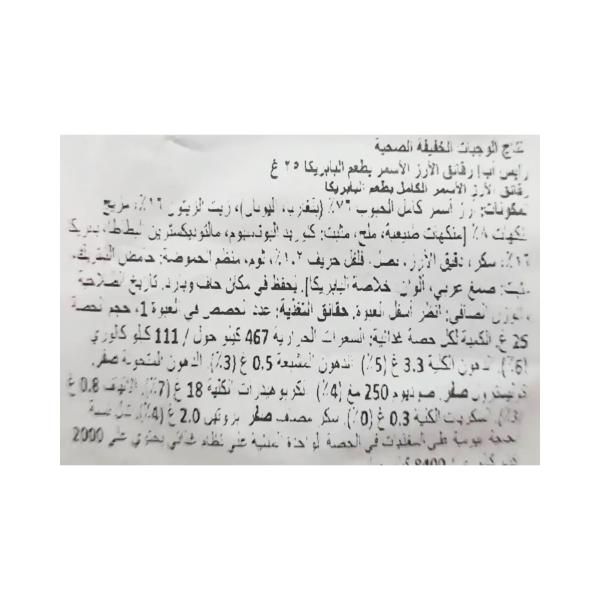 نتاج الوجبات الخفيفة الصحية
رايس أب! رقائق الأرز الأسمر بطعم البابريكا ٢٥ غ
رقائق الأرز الأسمر الكامل بطعم البابريكا
المكونات: أرز أسمر كامل الحبوب ٧٦٪ (بلغاريا، اليونان)، زيت الزيتون ١٦٪، مزيج
نكهات ٨٪ [منكهات طبيعية، ملح، مثبت: كلوريد البوتاسيوم، مالتوديكسترين البطاطا، بابريكا
سكر، دقيق الأرز، بصل، فلفل حريف ١.٢٪، ثوم، منظم الحموضة: حامض الستريك،
مثبت: صمغ عربي، ألوان: خلاصة البابريكا]. يحفظ في مكان جاف وبارد. تاريخ الصلاحية
والوزن الصافي: انظر أسفل العبوة. حقائق التغذية: عدد الحصص في العبوة 1، حجم الحصة
25 غ. الكمية لكل حصة غذائية: السعرات الحرارية 467 كيلو جول / 111 كيلو كالوري
(6%). الدهون الكلية 3.3 غ (5%) الدهون المشبعة 0.5 غ (3%). الدهون المتحولة صفر.
كوليسترول صفر. صوديوم 250 مغ (4%) الكربوهيدرات الكلية 18 غ (7%). الألياف 0.8 غ
(3%). السكريات الكلية 0.3 غ (0%). سكر مضاف صفر بروتين 2.0 غ (4%).
الحصة الواحدة المبنية على نظام غذائي يحتوي على 2000